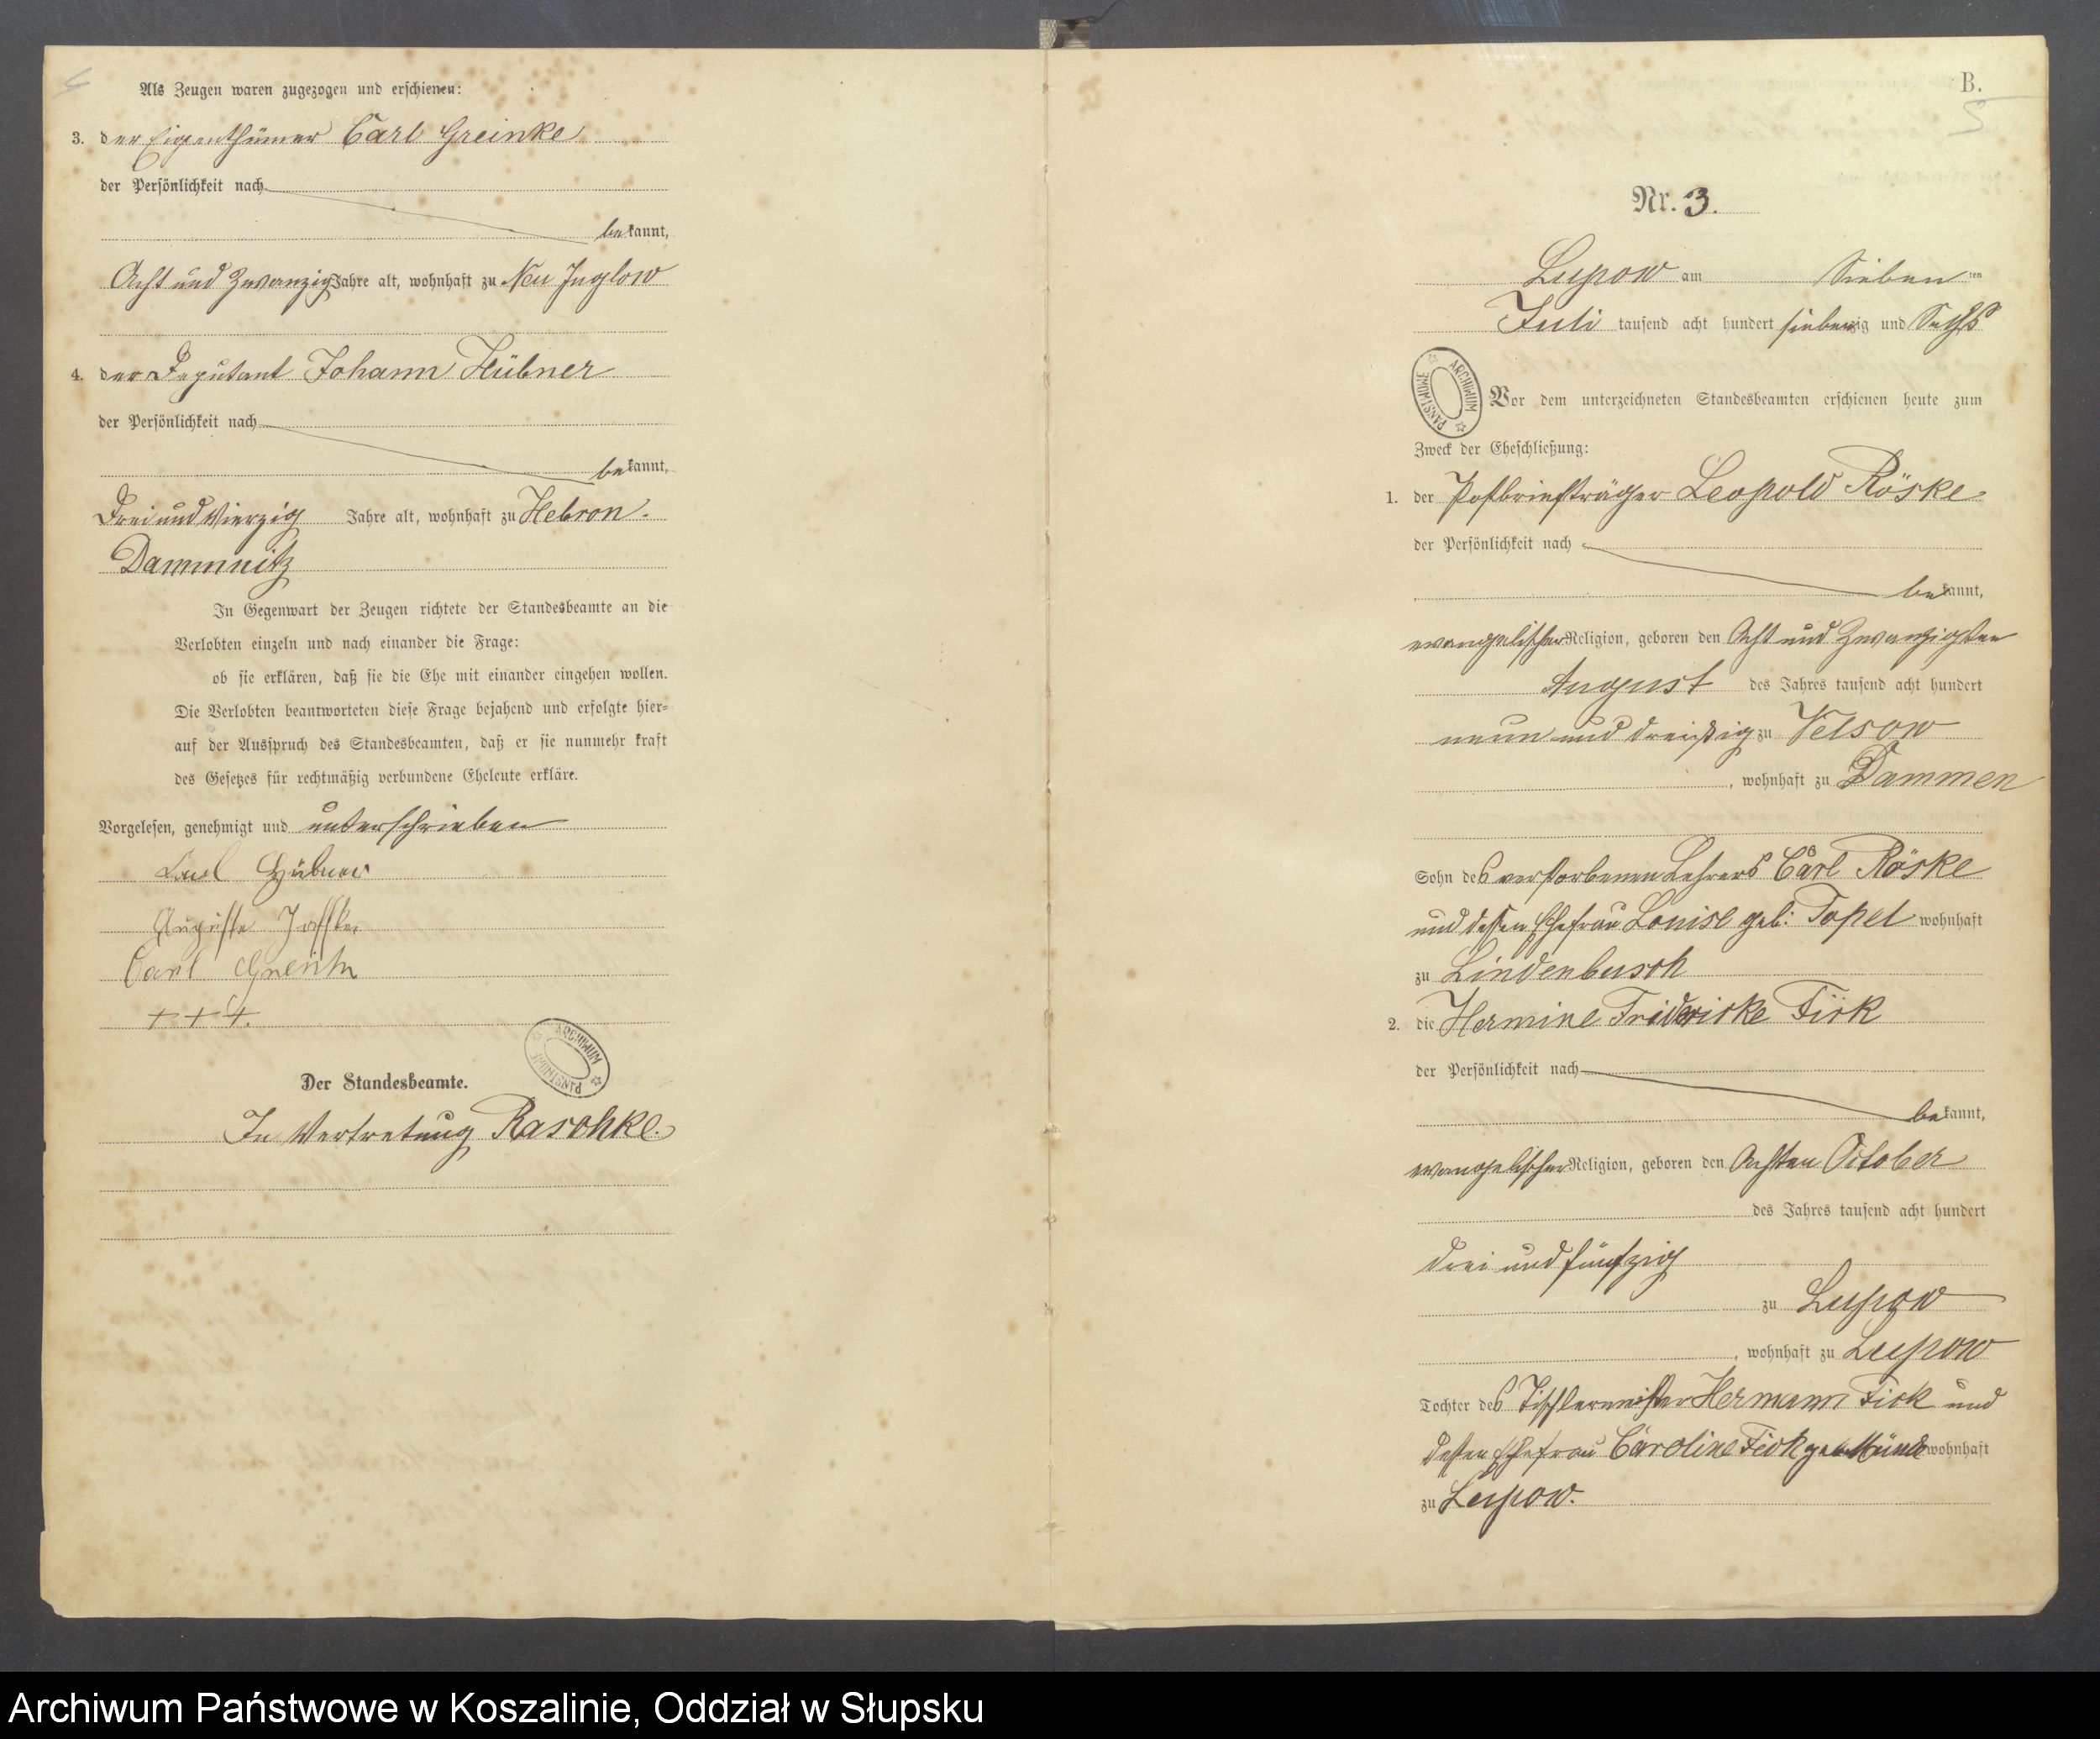 Als Zeugen waren zugezogen und erschienen:
3. der Eigenthümer Carl Greinke
der Persönlichkeit nach
bekannt,
Acht und Zwanzig Jahre alt, wohnhaft zu Neu Juglow
4. der Deputant Johann Hübner
der Persönlichkeit nach
bekannt,
Drei und Vierzig Jahre alt, wohnhaft zu Hebron-
Dammnitz
In Gegenwart der Zeugen richtete der Standesbeamte an die
Verlobten einzeln und nach einander die Frage:
ob sie erklären, daß sie die Ehe mit einander eingehen wollen.
Die Verlobten beantworteten diese Frage bejahend und erfolgte hier-
auf der Ausspruch des Standesbeamten, daß er sie nunmehr kraft
des Gesetzes für rechtmäßig verbundene Eheleute erkläre.
Vorgelesen, genehmigt und unterschrieben
Carl Hübner
Auguste
Carl
+++.
ARCHIWUM PAŃSTWOWE
Der Standesbeamte.
In Vertretung Raschke.
B.
5
Nr. 3.
Lupow am Sieben ten
Juli tausend acht hundert siebenzig und Sechs
ARCHIWUM PAŃSTWOWE
Vor dem unterzeichneten Standesbeamten erschienen heute zum
Zweck der Eheschließung:
1. der Postbriefträger Leopold Röske
der Persönlichkeit nach
bekannt,
evangelischer Religion, geboren den Acht und Zwanzigsten
August des Jahres tausend acht hundert
neun und dreißig zu Velsow
, wohnhaft zu Dammen
Sohn des verstorbenen Lehrers Carl Röske
und dessen Ehefrau Louise geb: Topel wohnhaft
zu Lindenbusch
2. die Hermine Friderike Fick
der Persönlichkeit nach
bekannt,
evangelischer Religion, geboren den Achten October
des Jahres tausend acht hundert
drei und fünfzig
zu Lupow
, wohnhaft zu Lupow
Tochter des Tischlermeister Hermann Fick und
dessen Ehefrau Caroline Fick geb wohnhaft
zu Lupow.
Archiwum Państwowe w Koszalinie, Oddział w Słupsku